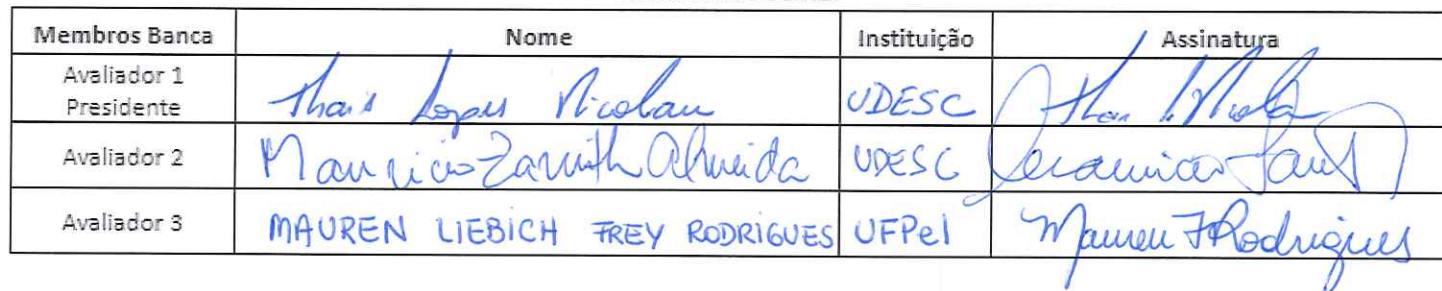 Membros Banca Nome Instituição Assinatura
Avaliador 1
Presidente Thais Lopes Nicolau UDESC
Avaliador 2 Mauricio Zarnith Almeida UDESC
Avaliador 3 MAUREN LIEBICH FREY RODRIGUES UFPel Mauren F Rodrigues